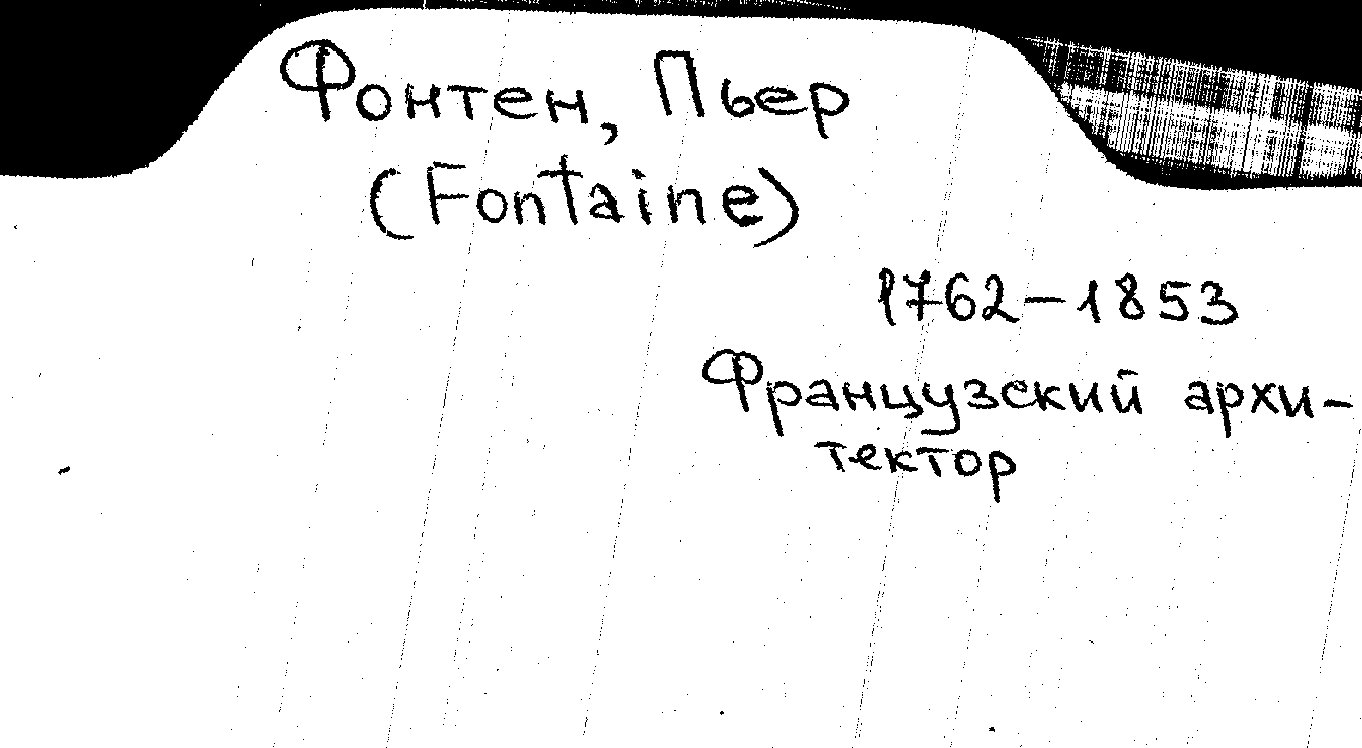 Фонтен, Пьер
(Fontaine)
1762-1853
Французский архи-
тектор